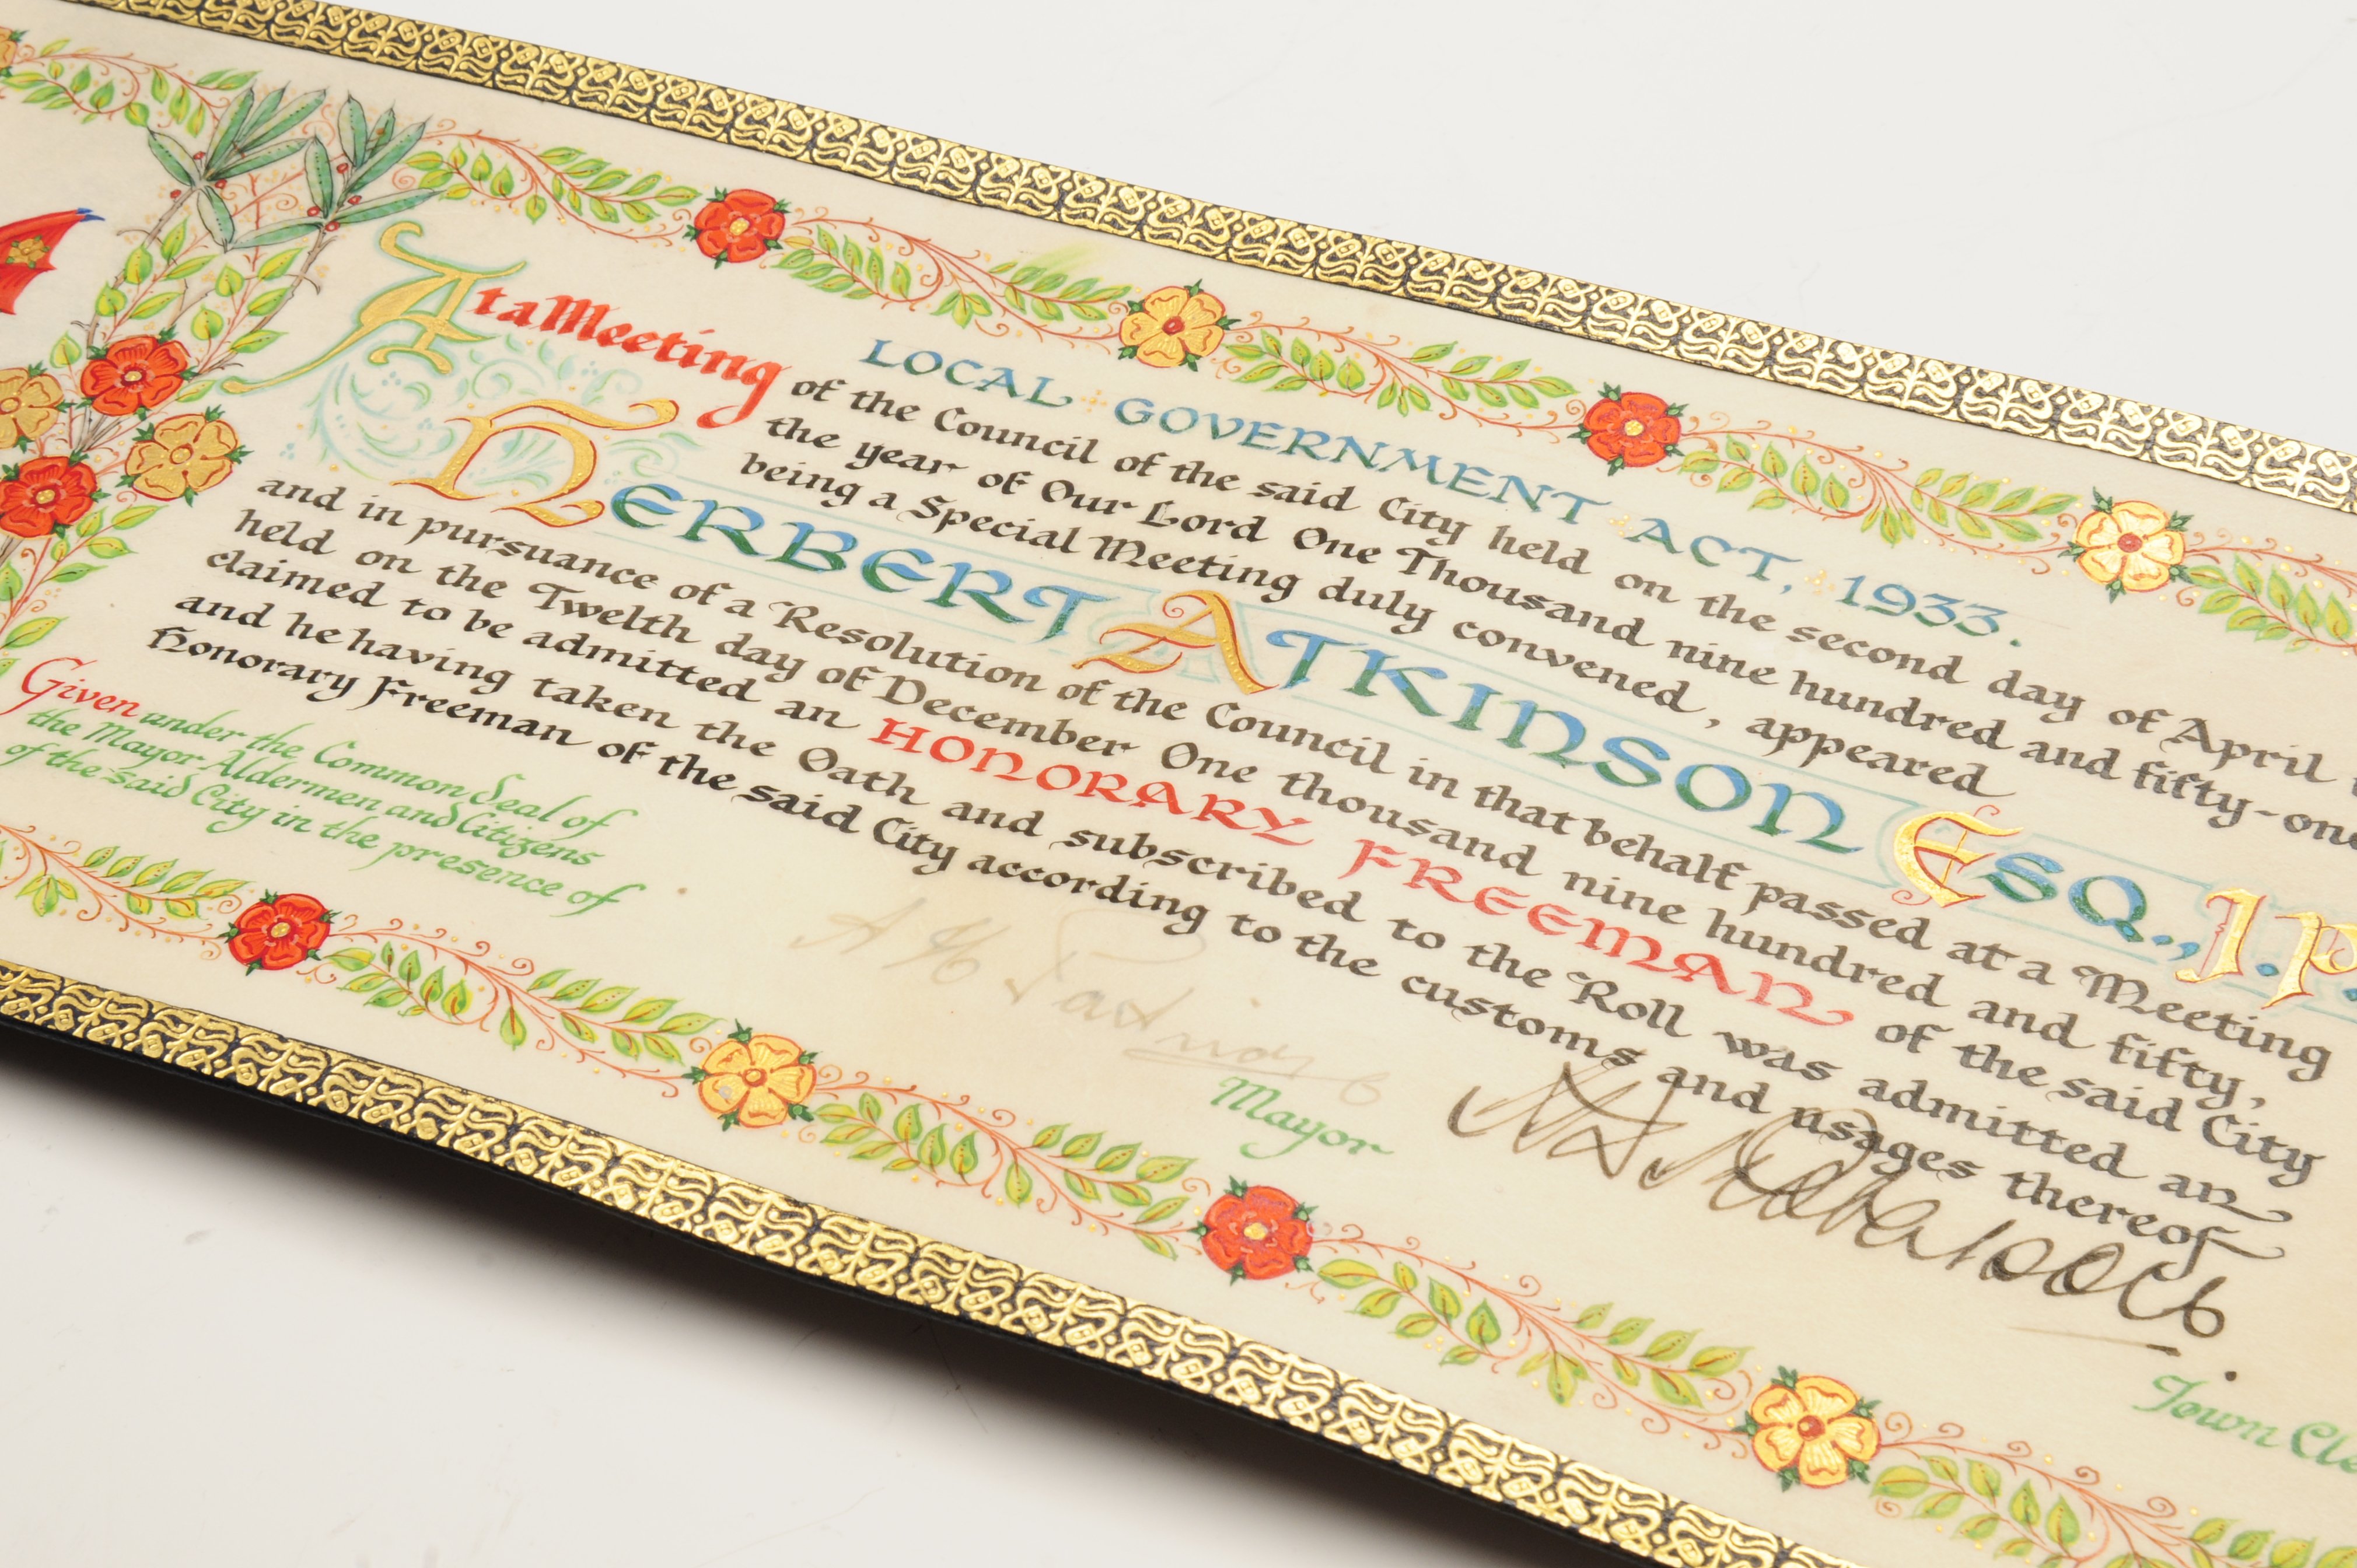 LOCAL GOVERNMENT ACT, 1933.
At a Meeting of the Council of the said City held on the second day of April
the year of Our Lord One Thousand nine hundred and fifty-one
being a Special Meeting duly convened, appeared
HERBERT ATKINSON ESQ., J.P.
and in pursuance of a Resolution of the Council in that behalf passed at a Meeting
held on the Twelth day of December One thousand nine hundred and fifty,
claimed to be admitted an HONORARY FREEMAN of the said City
and he having taken the Oath and subscribed to the Roll was admitted an
Honorary Freeman of the said City according to the customs and usages thereof
Given under the Common Seal of
the Mayor Aldermen and Citizens
of the said City in the presence of
Mayor
Town